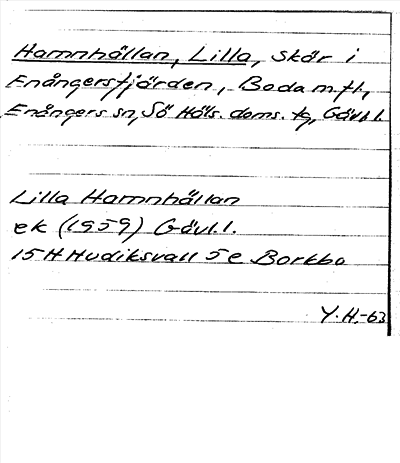 Hamnhällan, Lilla, skär i
Enångersfjärden, Boda m.fl,
Enångers sn, Sö Häls. doms. tg, Gävl.l.
Lilla Hamnhällan
ek (1959) Gävl.l.
15 H Hudiksvall 5 e Borkbo
Y.H.-63